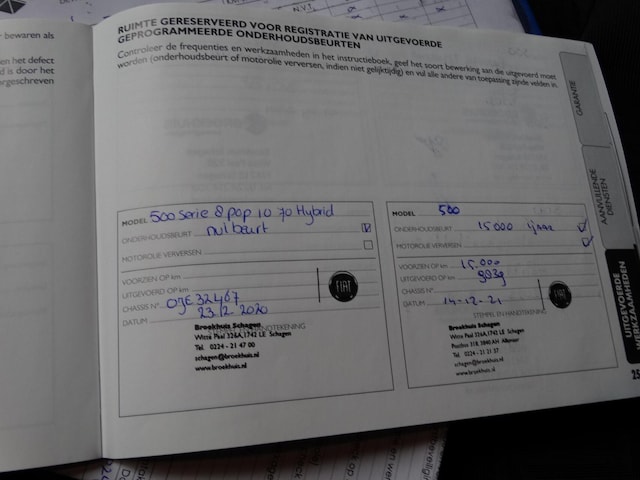 N.V.t.
r bewaren als
en het defect
d is door het
orgeschreven
RUIMTE GERESERVEERD VOOR REGISTRATIE VAN UITGEVOERDE
GEPROGRAMMEERDE ONDERHOUDSBEURTEN
Controleer de frequenties en werkzaamheden in het instructieboek, geef het soort bewerking aan die uitgevoerd moet
worden (onderhoudsbeurt of motorolie verversen, indien niet gelijktijdig) en vul alle andere van toepassing zijnde velden in.
MODEL 500 Serie 8 pop 1.0 70 Hybrid
ONDERHOUDSBEURT nulbeurt
MOTOROLIE VERVERSEN
VOORZIEN OP km
UITGEVOERD OP km
CHASSIS N°
DATUM 23/2 2020
FIAT
STEMPEL EN HANDTEKENING
Broekhuis Schagen
Witte Paal 326A, 1742 LE Schagen
Tel. 0224 - 21 47 00
schagen@broekhuis.nl
www.broekhuis.nl
MODEL 500
ONDERHOUDSBEURT 15000
MOTOROLIE VERVERSEN
VOORZIEN OP km 15.000
UITGEVOERD OP km 9839
CHASSIS N°
DATUM 14-12-21
FIAT
STEMPEL EN HANDTEKENING
Broekhuis Schagen
Witte Paal 326A, 1742 LE Schagen
schagen@broekhuis.nl
www.broekhuis.nl
GARANTIE
AANVULLENDE
DIENSTEN
UITGEVOERDE
WERKZAAMHEDEN
25